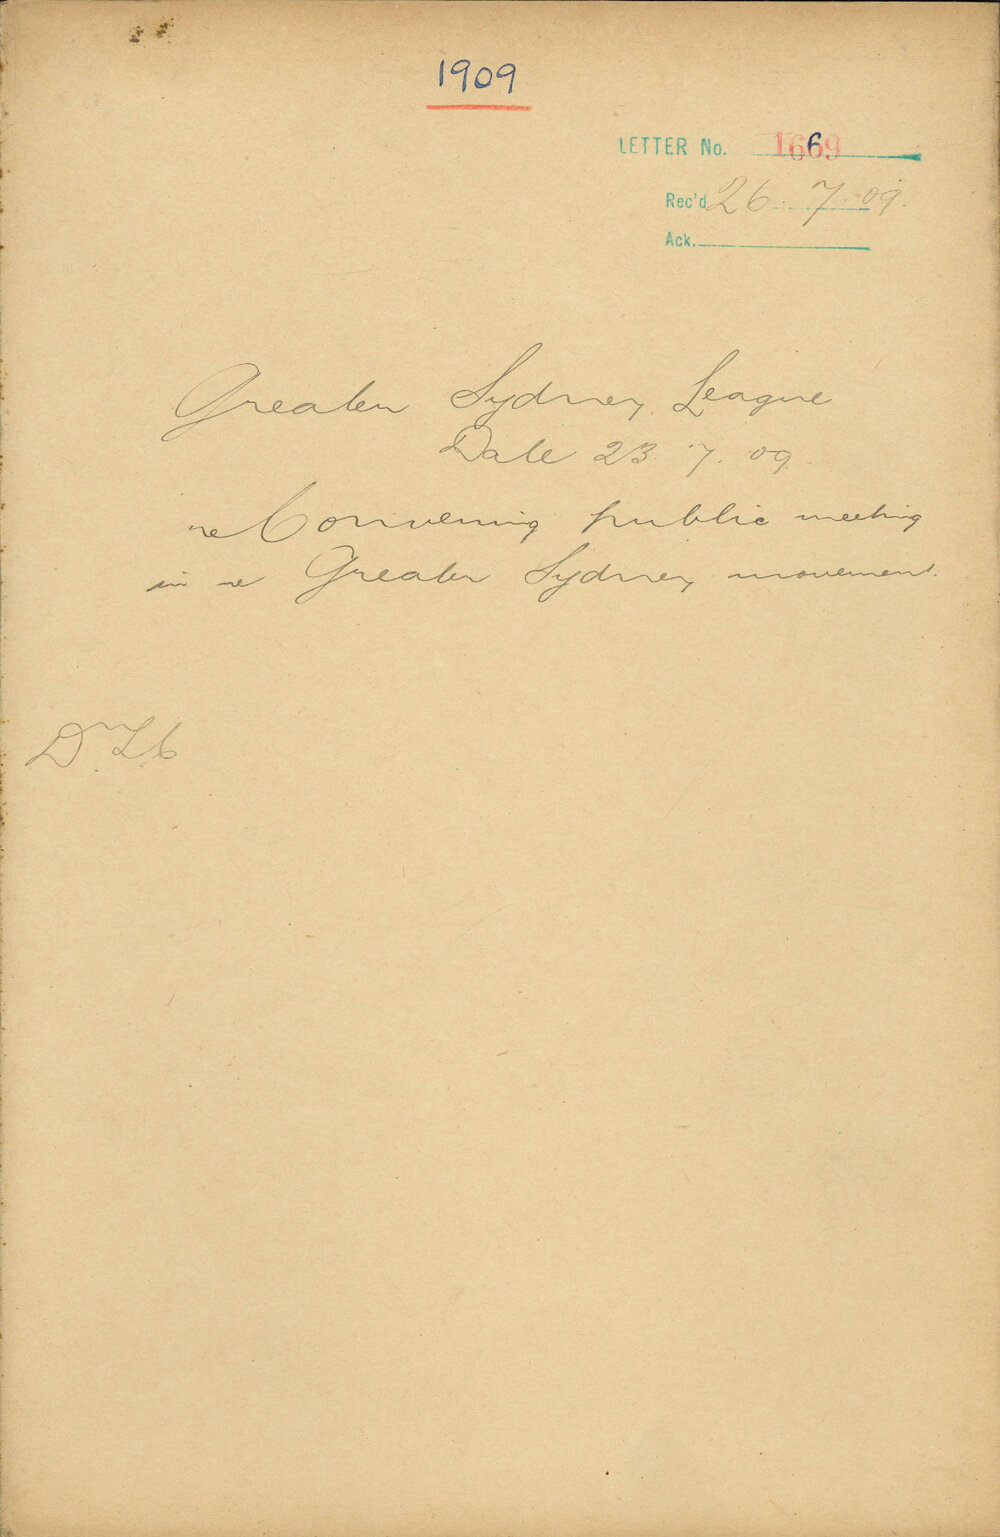 1909
LETTER No. 1669
Rec'd 26. 7. 09.
Ack.
Greater Sydney League
Date 23. 7. 09.
re Convening public meeting
in re Greater Sydney movement.